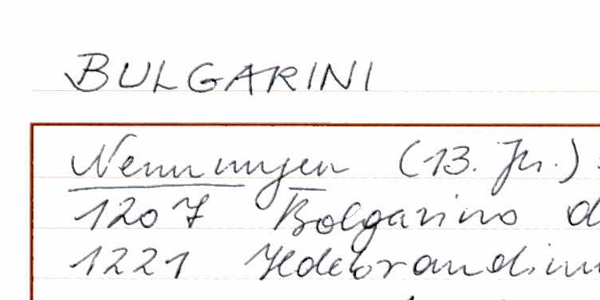 BULGARINI
Nennungen (13. Jh.):
1207 Bolgarino d
1221 Ildebrandin